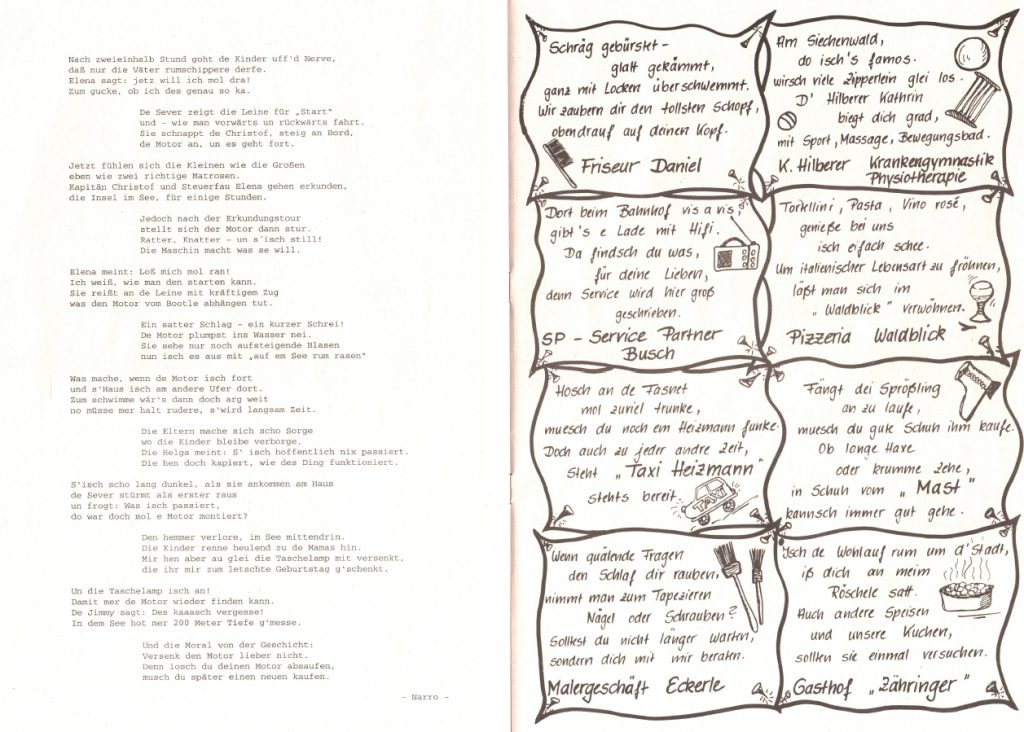 Nach zweieinhalb Stund goht de Kinder uff'd Nerve,
daß nur die Väter rumschippere derfe.
Elena sagt: jetz will ich mol dra!
Zum gucke, ob ich des genau so ka.
De Sever zeigt die Leine für „Start"
und - wie man vorwärts un rückwärts fahrt.
Sie schnappt de Christof, steig an Bord,
de Motor an, un es geht fort.
Jetzt fühlen sich die Kleinen wie die Großen
eben wie zwei richtige Matrosen.
Kapitän Christof und Steuerfau Elena gehen erkunden,
die Insel im See, für einige Stunden.
Jedoch nach der Erkundungstour
stellt sich der Motor dann stur.
Ratter, Knatter - un s´isch still!
Die Maschin macht was se will.
Elena meint: Loß mich mol ran!
Ich weiß, wie man den starten kann.
Sie reißt an de Leine mit kräftigem Zug
was den Motor vom Bootle abhängen tut.
Ein satter Schlag - ein kurzer Schrei!
De Motor plumpst ins Wasser nei.
Sie sehe nur noch aufsteigende Blasen
nun isch es aus mit „auf em See rum rasen"
Was mache, wenn de Motor isch fort
und s'Haus isch am andere Ufer dort.
Zum schwimme wär's dann doch arg weit
no müsse mer halt rudere, s'wird langsam Zeit.
Die Eltern mache sich scho Sorge
wo die Kinder bleibe verborge.
Die Helga meint: S' isch hoffentlich nix passiert.
Die hen doch kapiert, wie des Ding funktioniert.
S'isch scho lang dunkel, als sie ankommen am Haus
de Sever stürmt als erster raus
un frogt: Was isch passiert,
do war doch mol e Motor montiert?
Den hemmer verlore, im See mittendrin.
Die Kinder renne heulend zu de Mamas hin.
Mir hen aber au glei die Taschelamp mit versenkt,
die ihr mir zum letschte Geburtstag g'schenkt.
Un die Taschelamp isch an!
Damit mer de Motor wieder finden kann.
De Jimmy sagt: Des kaaasch vergesse!
In dem See hot mer 200 Meter Tiefe g'messe.
Und die Moral von der Geschicht:
Versenk den Motor lieber nicht.
Denn losch du deinen Motor absaufen,
musch du später einen neuen kaufen.
- Narro -
Schräg gebürskt -
glatt gekämmt,
ganz mit Locken überschwemmt.
Wir zaubern dir den tollsten Schopf,
obendrauf auf deinen Kopf.
Friseur Daniel
Am Siechenwald,
do isch's famos.
wirsch viele Zipperlein glei los.
D' Hilberer Kathrin
biegt dich grad,
mit Sport, Massage, Bewegungsbad.
K. Hilberer Krankengymnastik
Physiotherapie
Dort beim Bahnhof vis a vis,
gibt's e Lade mit Hifi.
Da findsch du was,
für deine Lieben,
denn Service wird hier groß
geschrieben.
SP - Service Partner
Busch
Tortellini, Pasta, Vino rosé,
genieße bei uns
isch eifach schee.
Um italienischer Lebensart zu fröhnen,
läßt man sich im
„Waldblick" verwöhnen.
Pizzeria Waldblick
Hosch an de Fasnet
mol zuviel trunke,
muesch du noch em Heizmann funke.
Doch auch zu jeder andre Zeit,
steht „Taxi Heizmann"
stehts bereit.
TAXI
Fängt dei Sprößling
an zu laufe,
muesch du gute Schuh ihm kaufe.
Ob lange Haxe
oder krumme Zehe,
in Schuh vom „Mast"
kannsch immer gut gehe.
Wenn quälende Fragen
den Schlaf dir rauben,
nimmt man zum Tapezieren
Nägel oder Schrauben?
Sollest du nicht länger warten,
sondern dich mit mir beraten.
Malergeschäft Eckerle
Isch de Wohlauf rum um d'Stadt,
iß dich an meim
Röschele satt.
Auch andere Speisen
und unsere Kuchen,
sollten sie einmal versuchen.
Gasthof „Zähringer"